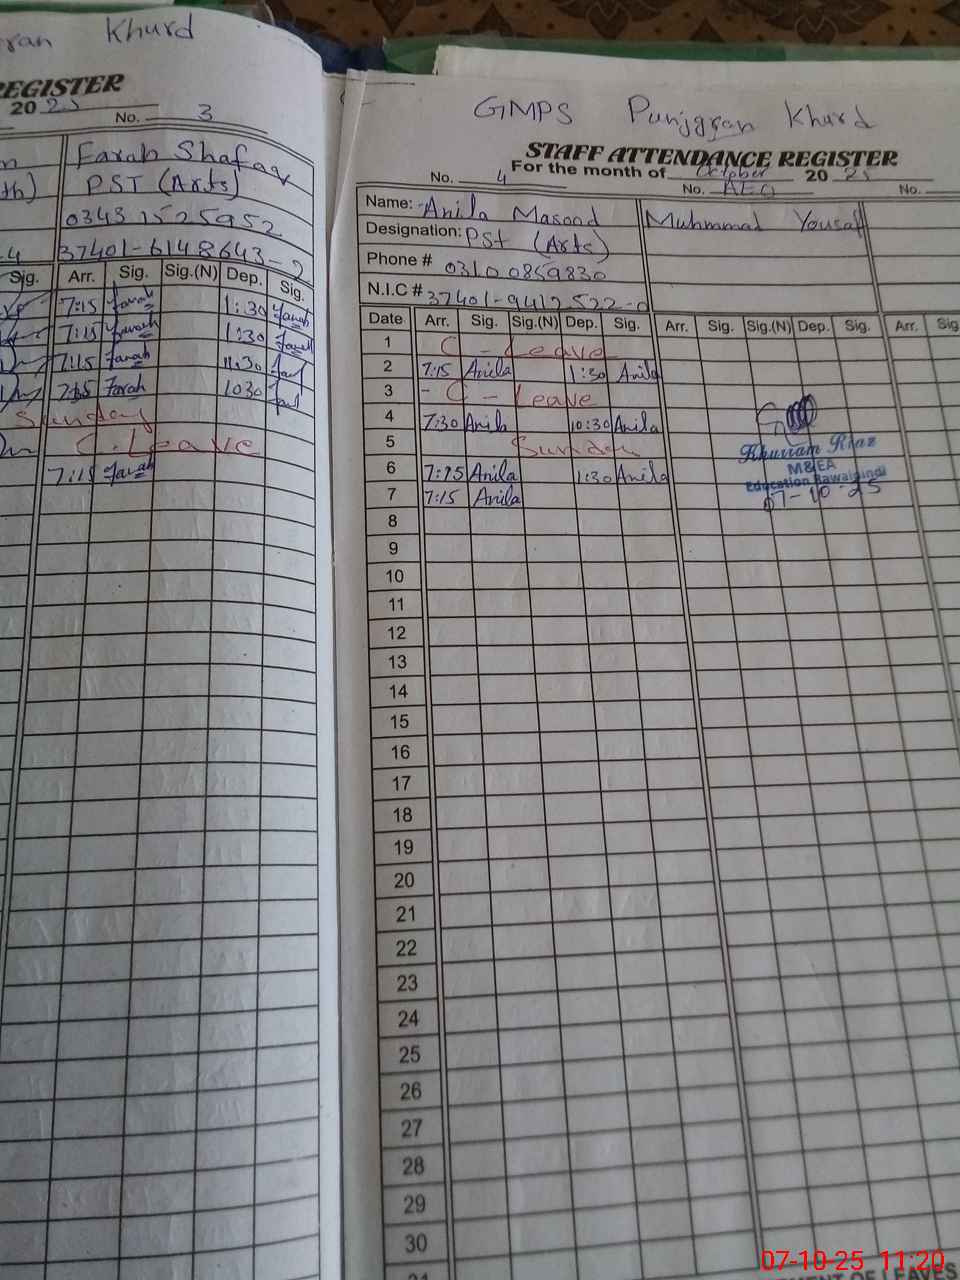 ran Khurd
REGISTER
20 25
No. 3
Farah Shafaq
th) PST (Arts)
0343 1525952
-4 37401-6148643-2
Sig. Arr. Sig. Sig.(N) Dep. Sig.
7:15 Farah 1:30 Farah
7:15 Farah 1:30 Farah
7:15 Farah 11:30
7:15 Farah 1030
Sunday
C. Leave
7:15 Farah
GMPS Punjgran Khurd
STAFF ATTENDANCE REGISTER
For the month of October 20 25
No. 4 No. AEO No.
Name: Anila Masood Muhmmad Yousaf
Designation: PST (Arts)
Phone # 0310 0859830
N.I.C # 37401-9412522-0
Date Arr. Sig. Sig.(N) Dep. Sig. Arr. Sig. Sig.(N) Dep. Sig. Arr. Sig
1 C - Leave
2 7:15 Anila 1:30 Anila
3 - C - Leave
4 7:30 Anila 10:30 Anila
5 Sunday
6 7:15 Anila 1:30 Anila
7 7:15 Anila
Khurram Riaz
M&EA
Education Rawalpindi
07-10-25
8
9
10
11
12
13
14
15
16
17
18
19
20
21
22
23
24
25
26
27
28
29
30
31
OF LEAVES
07-10-25 11:20